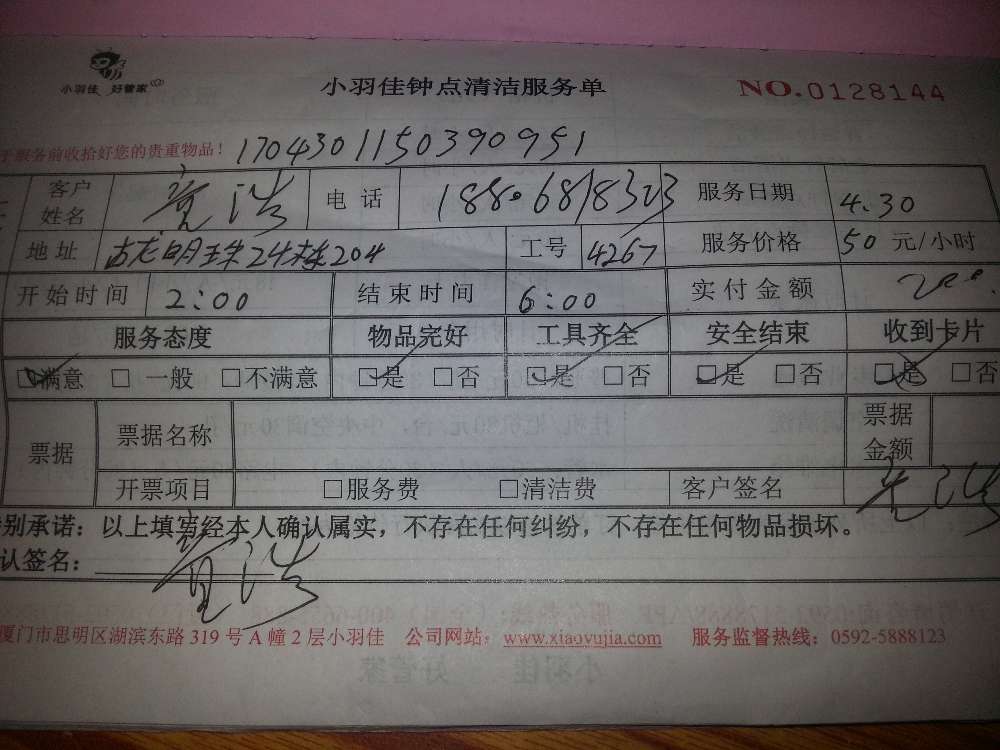 小羽佳 好管家
小羽佳钟点清洁服务单
NO.0128144
于服务前收拾好您的贵重物品!
1704301150390951
客户姓名 电话 188.6818323 服务日期 4.30
地址 古龙明珠24栋204 工号 4267 服务价格 50 元/小时
开始时间 2:00 结束时间 6:00 实付金额
服务态度 物品完好 工具齐全 安全结束 收到卡片
☑满意 □ 一般 □不满意 ☑是 □否 ☑是 □否 ☑是 □否 ☑是 □否
票据 票据名称 票据金额
开票项目 □服务费 □清洁费 客户签名
别承诺：以上填写经本人确认属实，不存在任何纠纷，不存在任何物品损坏。
认签名：
厦门市思明区湖滨东路 319 号 A 幢 2 层小羽佳 公司网站：www.xiaoyujia.com 服务监督热线：0592-5888123